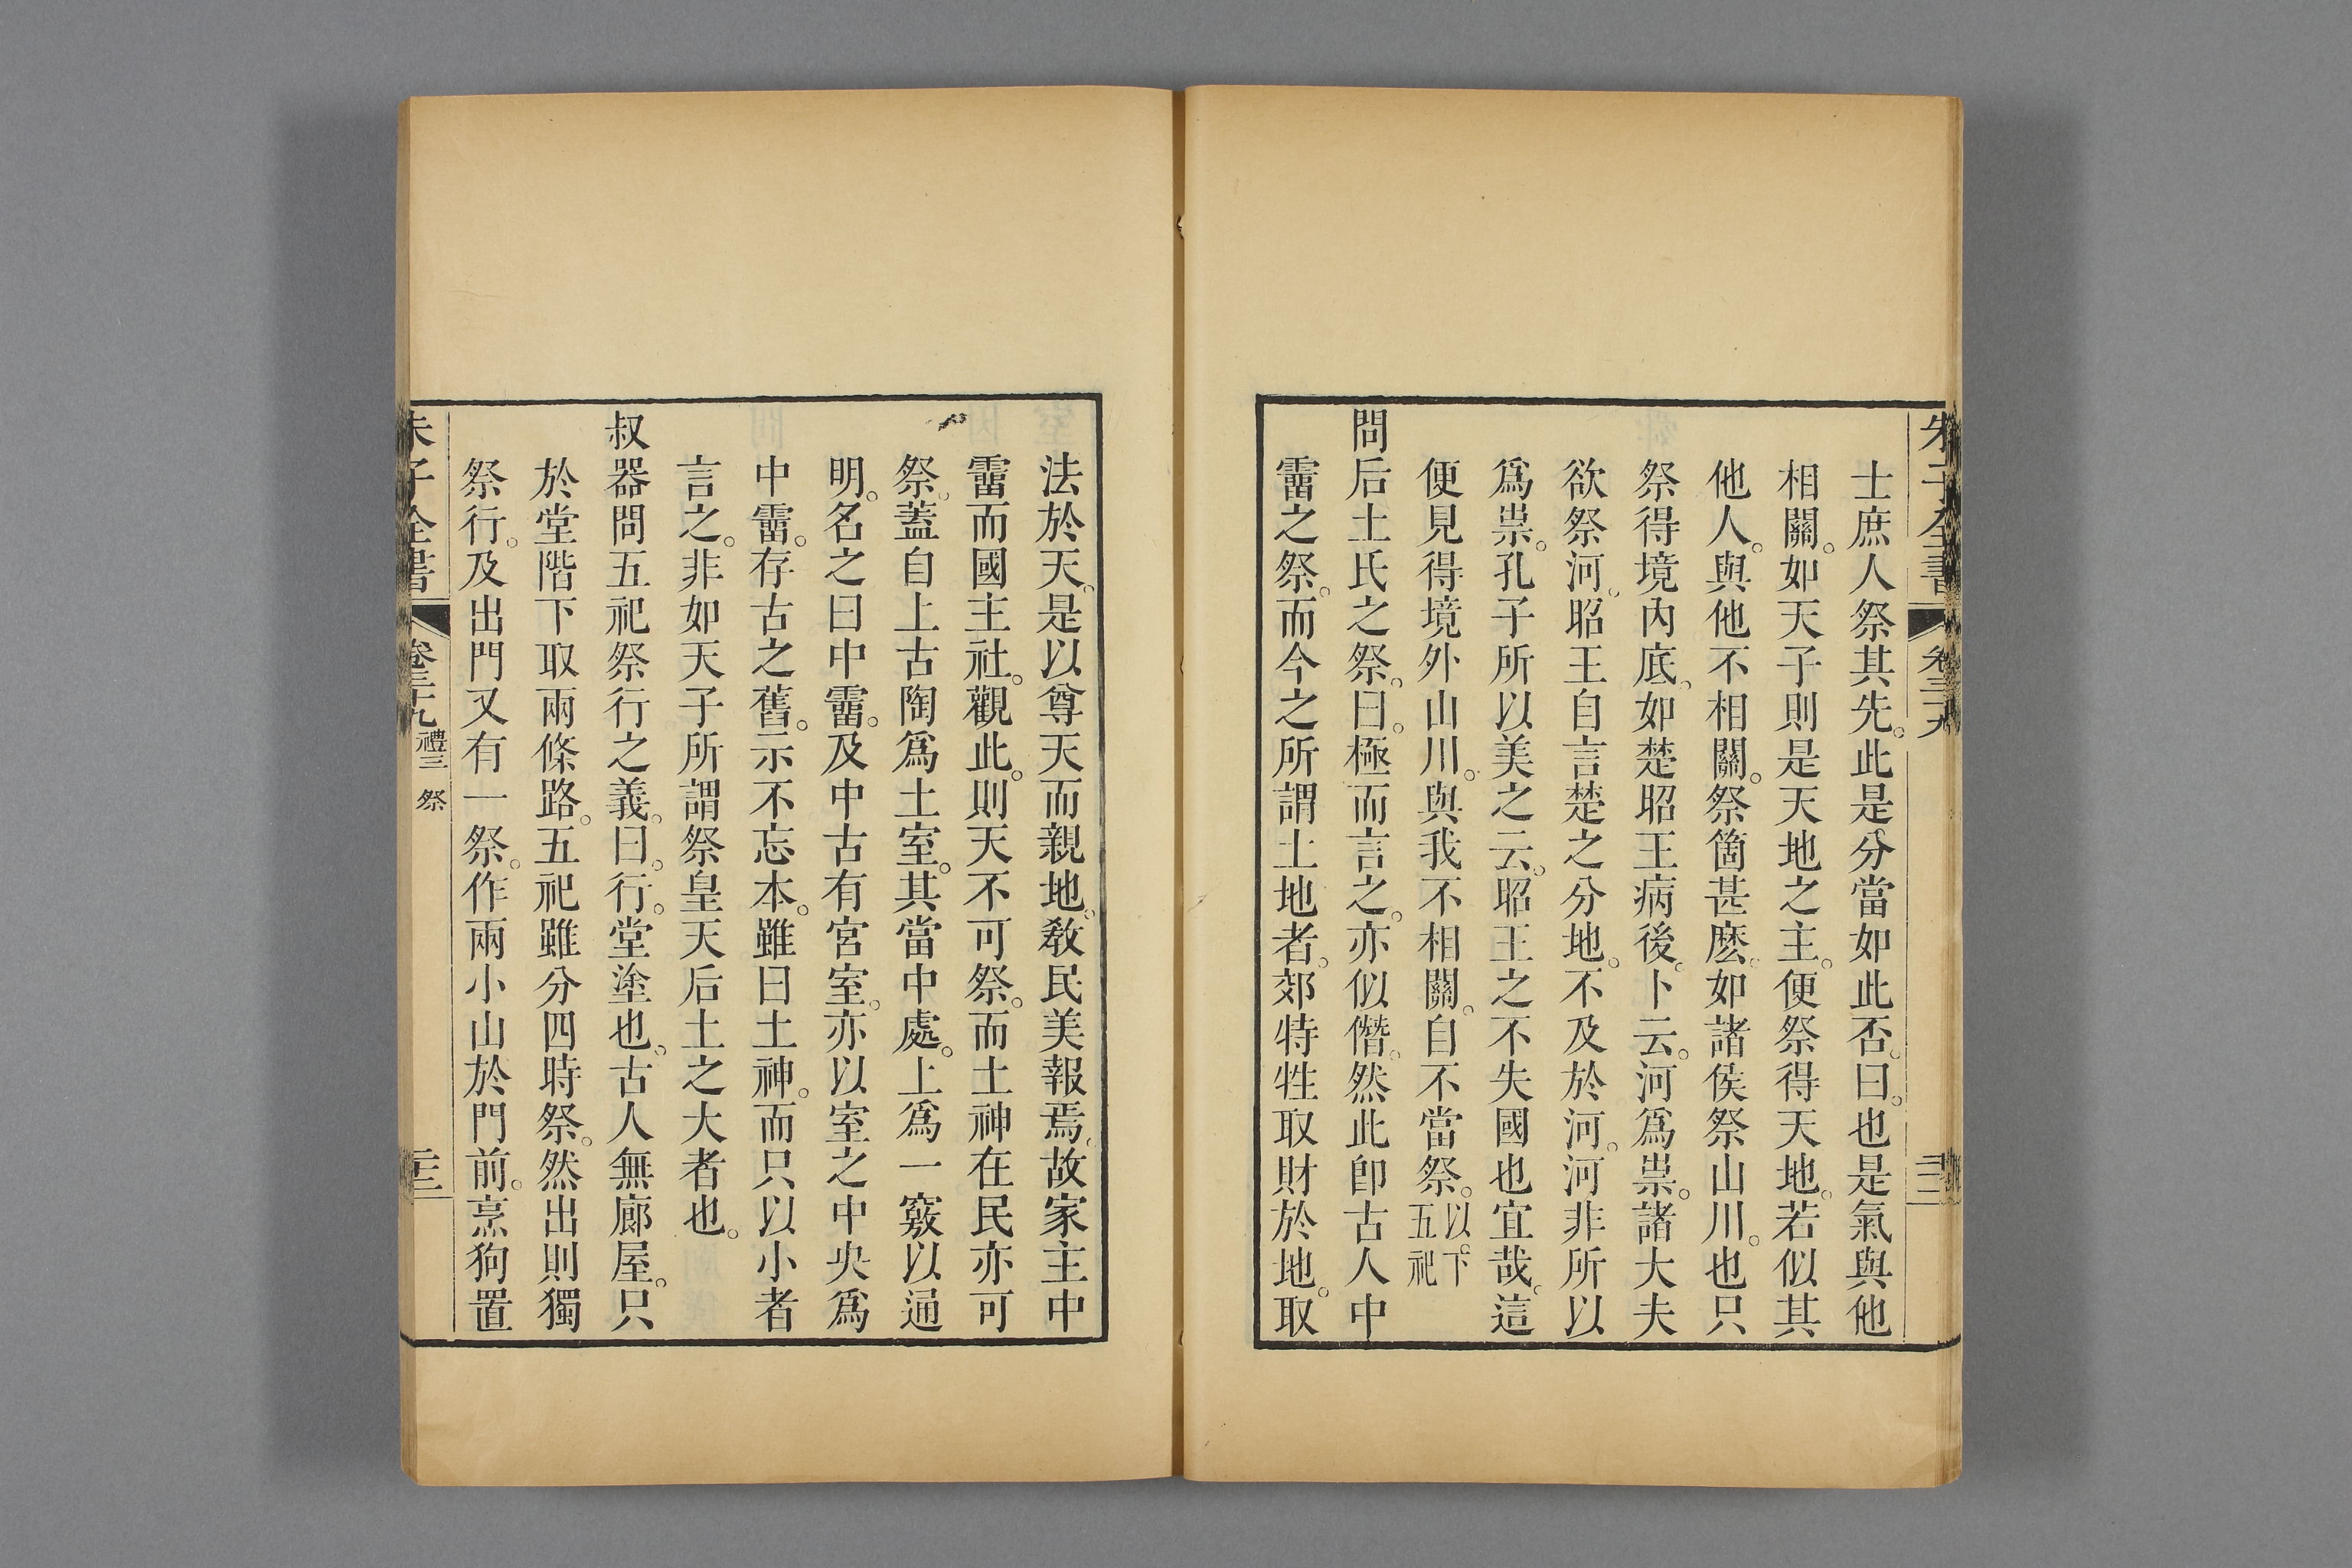 朱子全書 卷三十九
士庶人祭其先。此是分當如此否。曰。也是氣與他
相關。如天子則是天地之主。便祭得天地。若似其
他人。與他不相關。祭箇甚麼。如諸侯祭山川。也只
祭得境內底。如楚昭王病後。卜云。河爲祟。諸大夫
欲祭河。昭王自言楚之分地。不及於河。河非所以
爲祟。孔子所以美之云。昭王之不失國也宜哉。這
便見得境外山川。與我不相關。自不當祭。以下五祀
問后土氏之祭。曰。極而言之。亦似僭。然此卽古人中
霤之祭。而今之所謂土地者。郊特牲取財於地。取
法於天。是以尊天而親地。敎民美報焉。故家主中
霤而國主社。觀此。則天不可祭。而土神在民亦可
祭。蓋自上古陶爲土室。其當中處。上爲一竅以通
明。名之曰中霤。及中古有宮室。亦以室之中央爲
中霤。存古之舊。示不忘本。雖曰土神。而只以小者
言之。非如天子所謂祭皇天后土之大者也。
叔器問五祀祭行之義。曰。行。堂塗也。古人無廊屋。只
於堂階下取兩條路。五祀雖分四時祭。然出則獨
祭行。及出門又有一祭。作兩小山於門前。烹狗置
朱子全書 卷三十九 禮三 祭